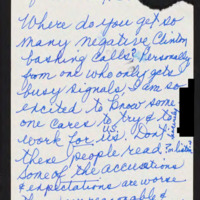 Where do you get so
many negative Clinton
bashing calls? Personally
from one who only gets
busy signals, I am so
excited to know some
one cares to try & to
work for us. Don't
these people read
Some of the accusations
& expectations are worse